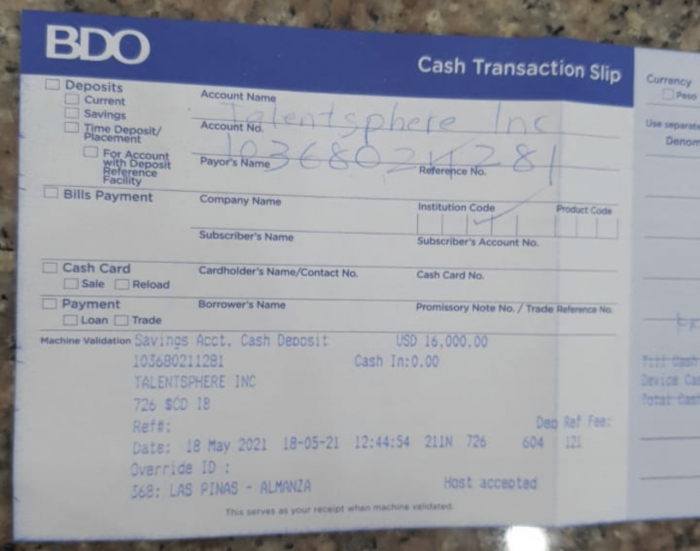 BDO
Cash Transaction Slip
Deposits
Current
Savings
Time Deposit/
Placement
For Account
with Deposit
Reference
Facility
Account Name
Talentsphere Inc
Account No.
Payor's Name
Reference No.
Bills Payment
Company Name
Institution Code
Product Code
Subscriber's Name
Subscriber's Account No.
Cash Card
Sale Reload
Cardholder's Name/Contact No.
Cash Card No.
Payment
Loan Trade
Borrower's Name
Promissory Note No. / Trade Reference No.
Machine Validation Savings Acct. Cash Deposit USD 16,000.00
103680211281 Cash In:0.00
TALENTSPHERE INC
726 $CD IB
Ref#: Dep Ref Fee:
Date: 18 May 2021 18-05-21 12:44:54 211N 726 604 121
Override ID :
368: LAS PINAS - ALMANZA Host accepted
This serves as your receipt when machine validated.
Currency
Peso
Use separate
Denom
Till Cash
Device Cas
Total Cash